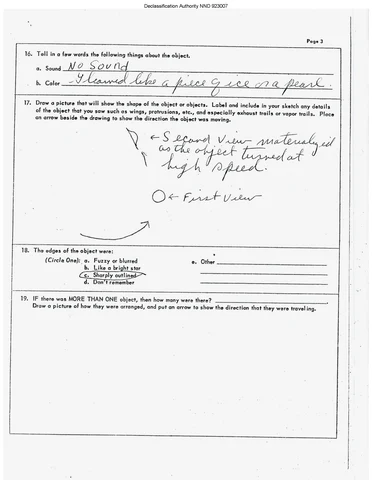 Declassification Authority NND 923007
Page 3
16. Tell in a few words the following things about the object.
a. Sound No Sound
b. Color Gleamed like a piece of ice or a pearl.
17. Draw a picture that will show the shape of the object or objects. Label and include in your sketch any details
of the object that you saw such as wings, protrusions, etc., and especially exhaust trails or vapor trails. Place
an arrow beside the drawing to show the direction the object was moving.
←Second View materialized
as the object turned at
high speed.
← First View
18. The edges of the object were:
(Circle One): a. Fuzzy or blurred e. Other
b. Like a bright star
c. Sharply outlined
d. Don't remember
19. IF there was MORE THAN ONE object, then how many were there?
Draw a picture of how they were arranged, and put an arrow to show the direction that they were traveling.